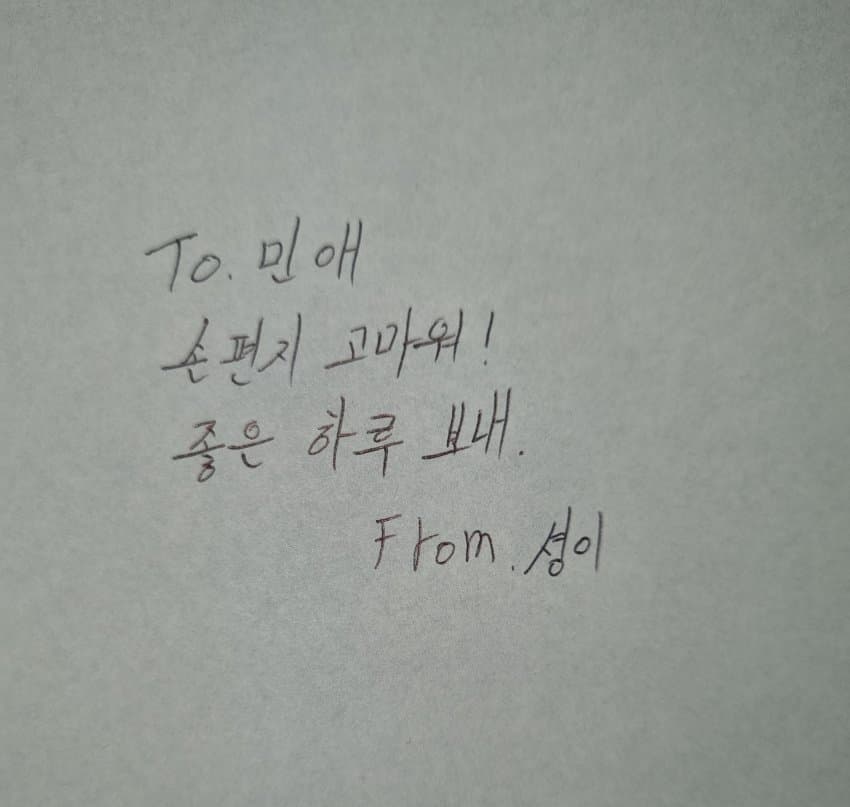 To. 민애
손편지 고마워!
좋은 하루 보내.
From. 셩이